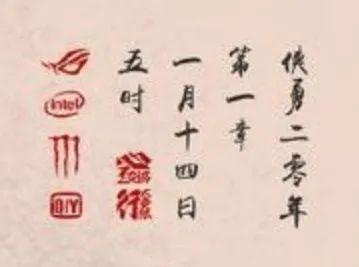 侠勇二零年
第一章
一月十四日
五时
intel
DIY